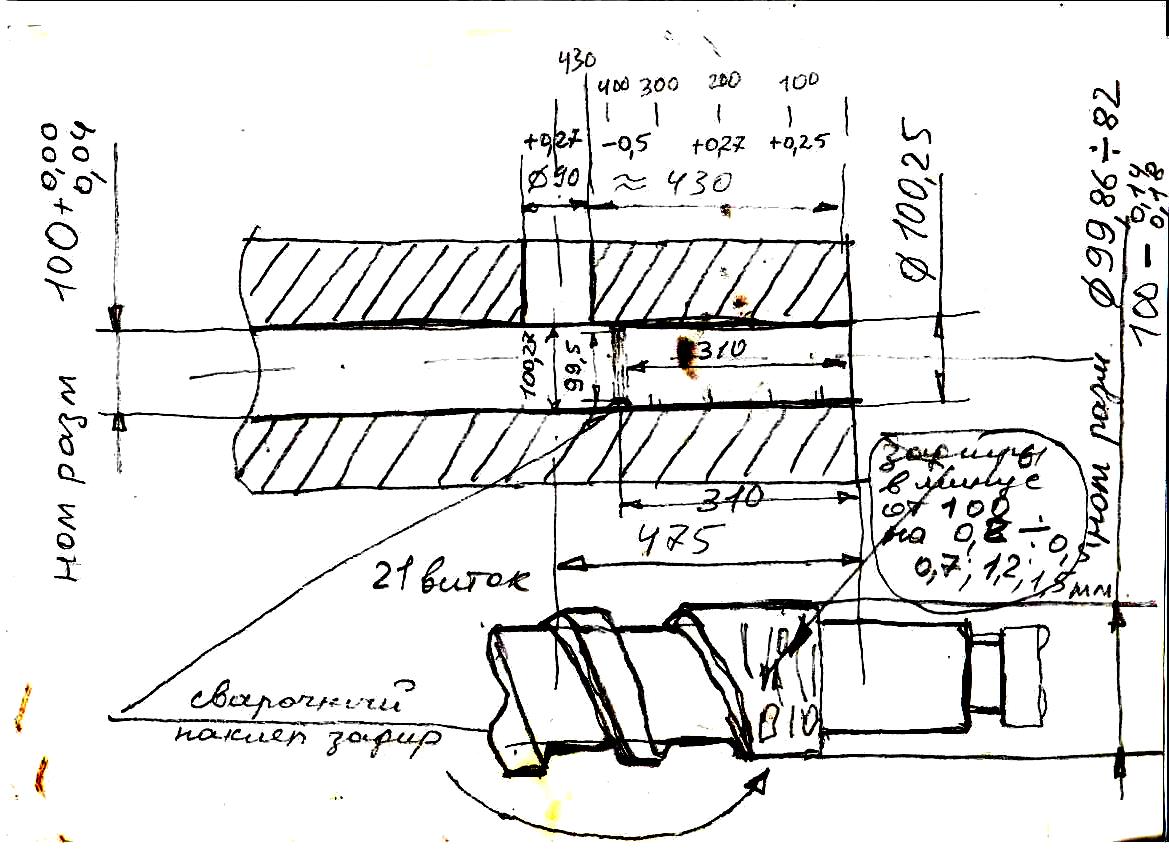 430
400 300 200 100
+0,27 -0,5 +0,27 +0,25
Ø90 ≈ 430
100 + 0,00
0,04
ном разм
Ø 100,25
Ø 99,86÷82
100 - 0,14
0,18
ном разм
100,27
99,5
310
310
475
задиры
в минус
от 100
на
0,7; 1,2; 1,5 мм
21 виток
сварочный
наклеп задир